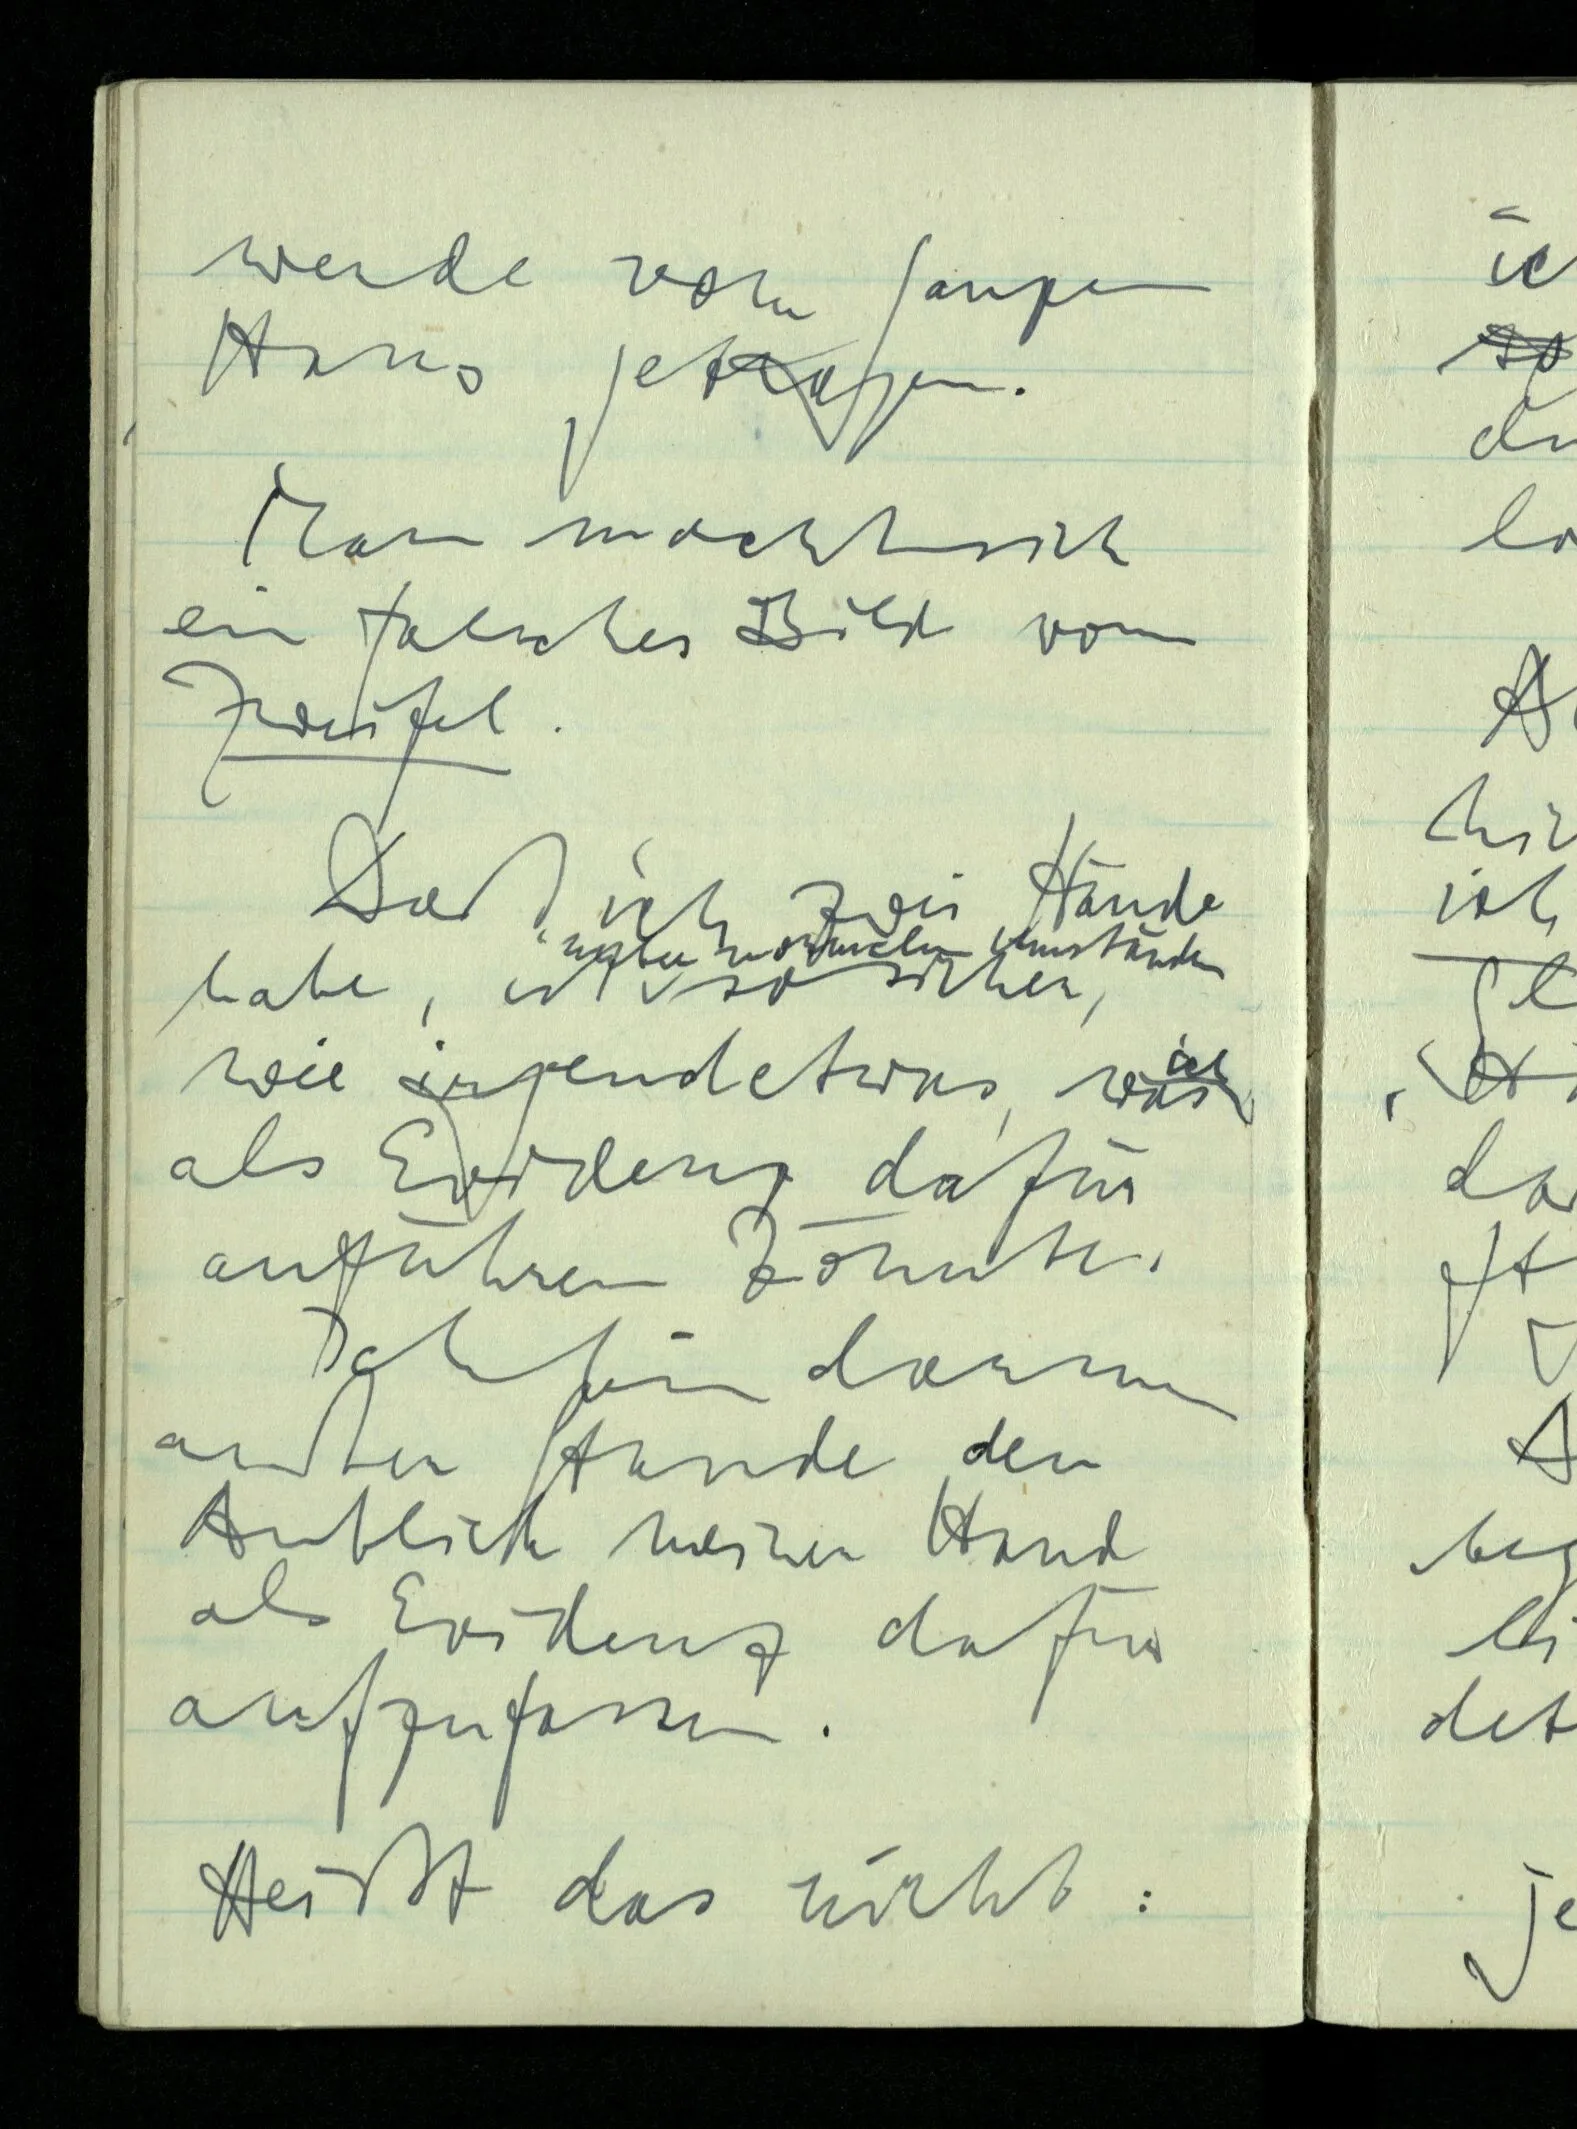 werde vom ganzen
Haus getragen.
Man macht sich
ein falsches Bild vom
Zweifel.
Daß ich zwei Hände
unter normalen Umständen
habe, ist so sicher,
wie irgendetwas, was ich
als Evidenz dafür
anführen könnte.
Ich bin darum
außer Stande den
Anblick meiner Hand
als Evidenz dafür
aufzufassen.
Heißt das nicht:
ich